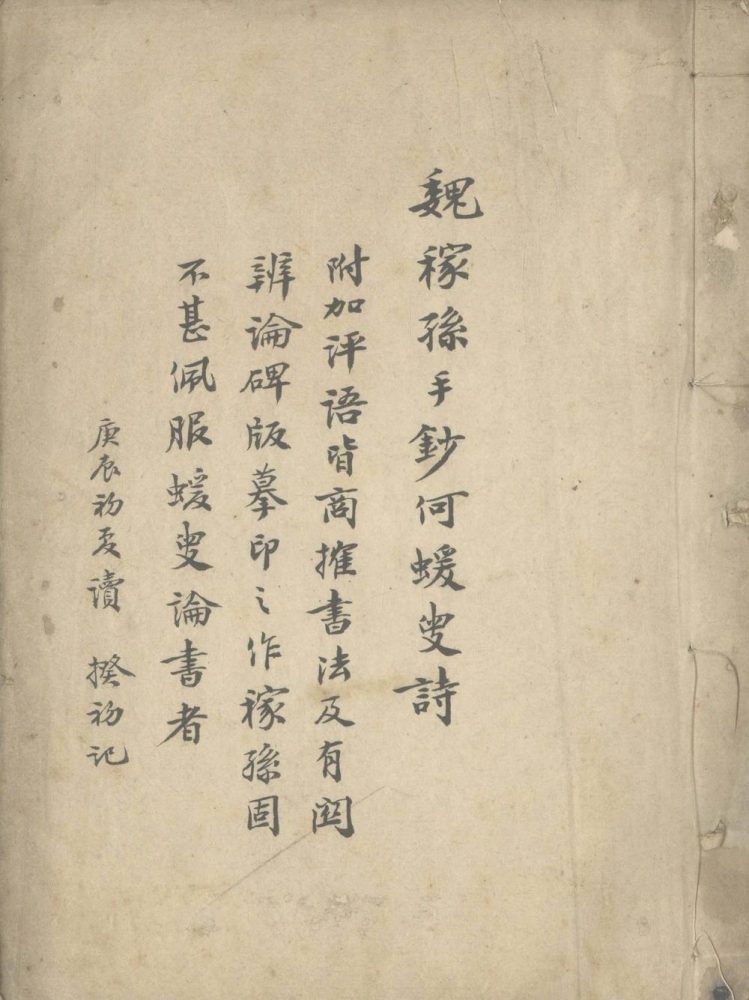 魏稼孫手鈔何蝯叟詩
附加評語皆商搉書法及有関
辨論碑版摹印之作稼孫固
不甚佩服蝯叟論書者
庚辰初夏讀 揆初記